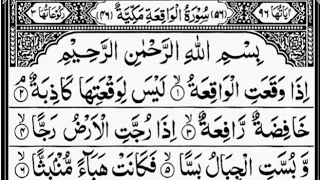 اٰيَاتُهَا ٩٦ (٥٦) سُوْرَةُ الْوَاقِعَةِ مَكِّيَّةٌ (٤٦) رُكُوْعَاتُهَا ٣
بِسْمِ اللّٰهِ الرَّحْمٰنِ الرَّحِيْمِ
اِذَا وَقَعَتِ الْوَاقِعَةُ ۝١ لَيْسَ لِوَقْعَتِهَا كَاذِبَةٌ ۝٢
خَافِضَةٌ رَّافِعَةٌ ۝٣ اِذَا رُجَّتِ الْاَرْضُ رَجًّا ۝٤
وَّ بُسَّتِ الْجِبَالُ بَسًّا ۝٥ فَكَانَتْ هَبَآءً مُّنْۢبَثًّا ۝٦